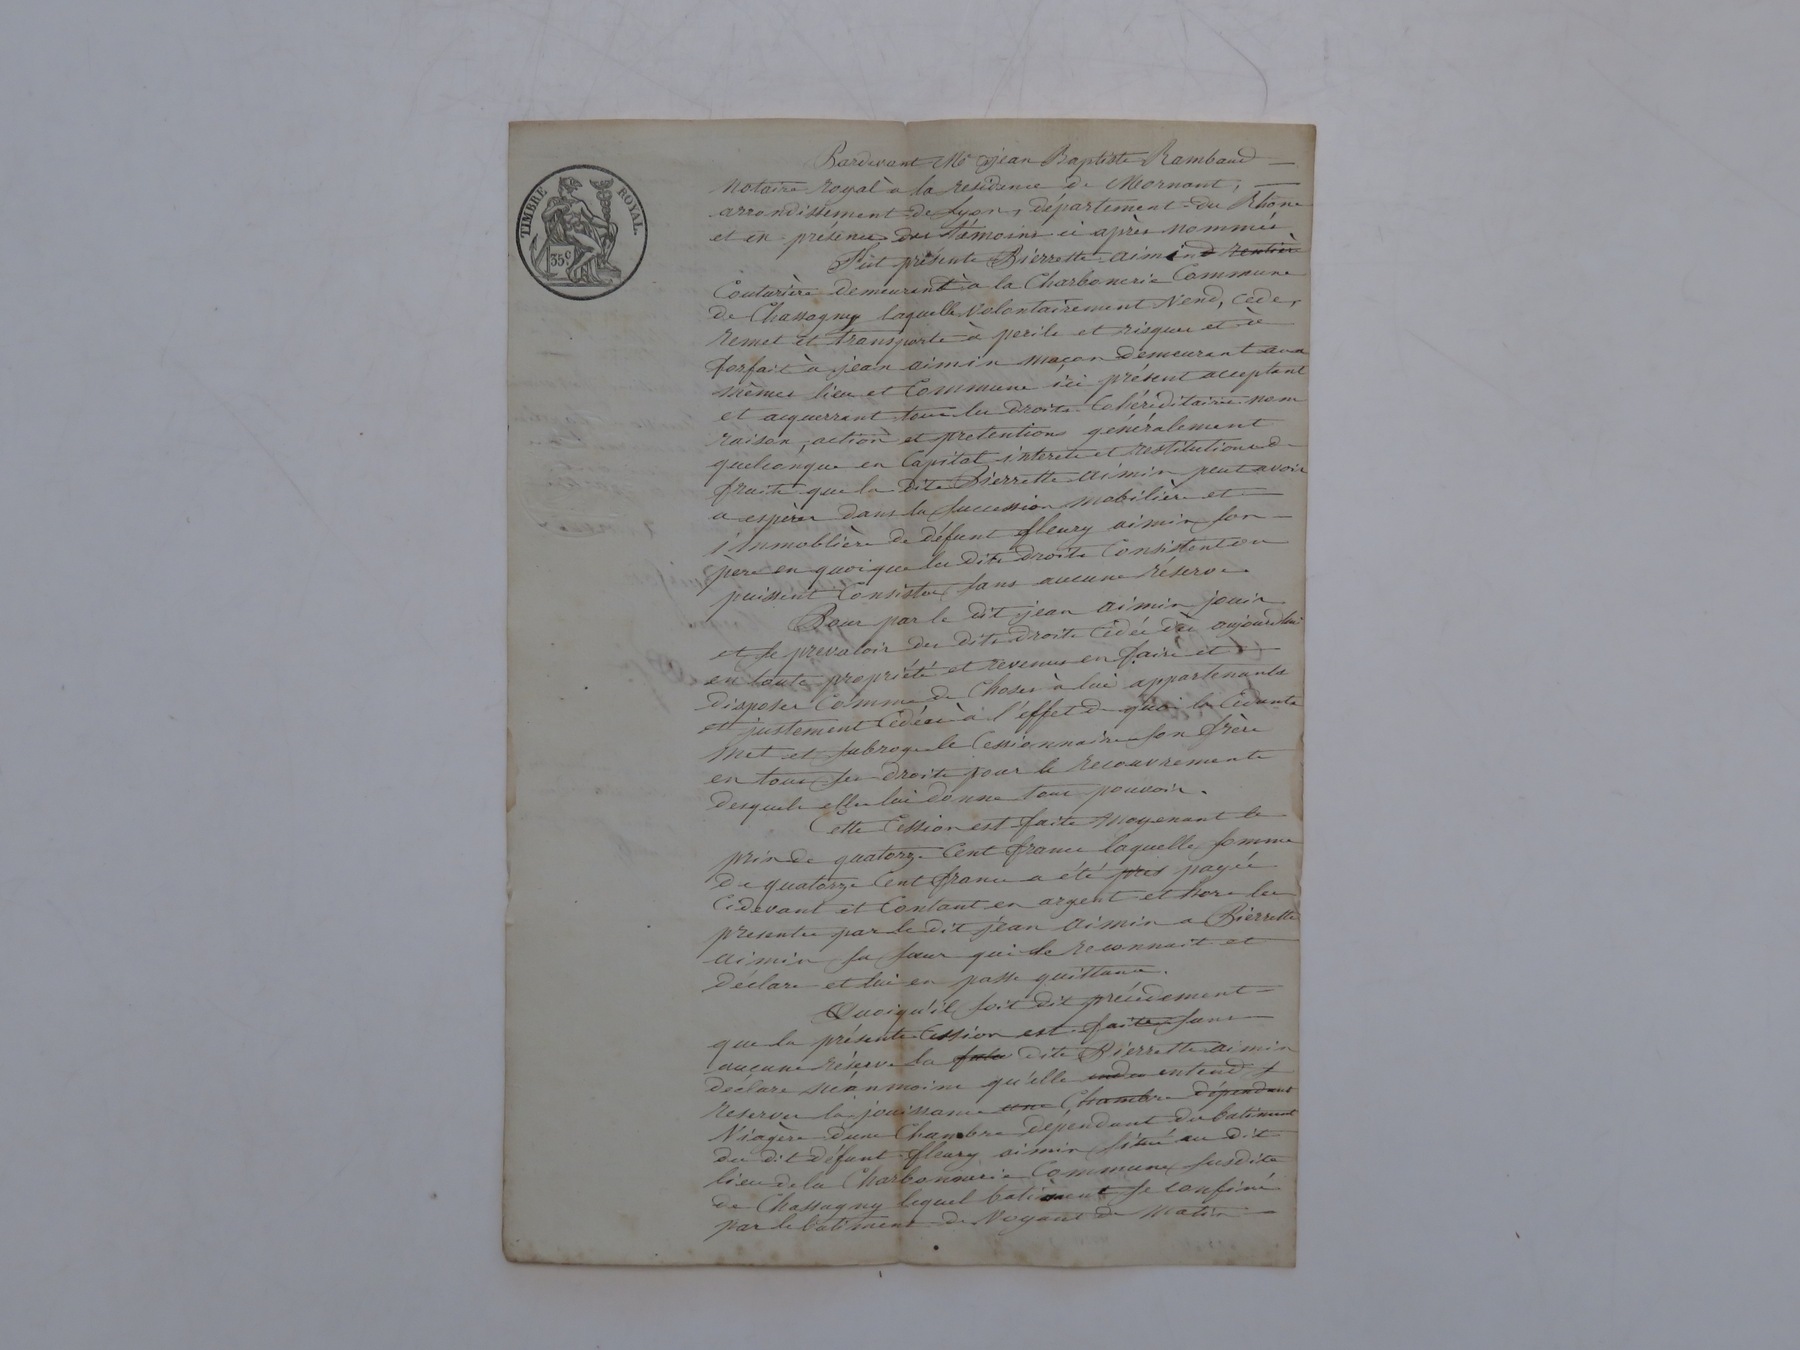 TIMBRE ROYAL.
35c.
Pardevant Me jean Baptiste Rambaud
notaire royal à la résidence de Mornant,
arrondissement de Lyon, département du Rhône
et en présence des témoins ci après nommés
Fut présente Pierrette aimin
Couturière demeurant à la Charbonerie Commune
de Chassagny laquelle volontairement vend, cede,
remet et transporte à perils et risques et à
forfait à jean aimin maçon demeurant aux
mêmes lieu et Commune ici présent acceptant
et acquerrant tous les droits Cohéréditaires nom
raison, action et pretentions généralement
quelconque en Capital interets et restitutions de
fruits que la dite Pierrette aimin peut avoir
a espèrer dans la succession mobilière et
immoblière de défunt fleury aimin son
pere en quoi que les dits droits Consistent ou
puissent Consister sans aucune réserve.
Pour par le dit jean aimin jouir
et se prevaloir des dits droits Cédés dès aujourdhui
en toute propriété et revenus en faire et
disposer Comme de Choses à lui appartenants
et justement Cédées à l'effet de quoi la Cédante
met et subroge le Cessionnaire son frère
en tous ses droits pour le recouvrements
desquels elle lui donne tous pouvoir.
Cette Cession est faite moyenant le
prix de quatorze Cent francs laquelle somme
de quatorze Cent francs a été pres payée
Cidevant et Contant en argent et hors les
presentes par le dit jean aimin a Pierrette
aimin sa sœur qui le reconnait et
déclare et lui en passe quittance.
Quoiqu'il soit dit précédement
que la présente Cession est faite sans
aucune réserve la dite Pierrette aimin
déclare néanmoins qu'elle entend s
reserver la jouissance une Chambre dépendant
Viagère d'une Chambre dépendant du batiment
du dit défunt fleury aimin situé au dit
lieu de la Charbonnerie Commune susdite
de Chassagny lequel batiment se confine
par le batiment de Voyant de matin